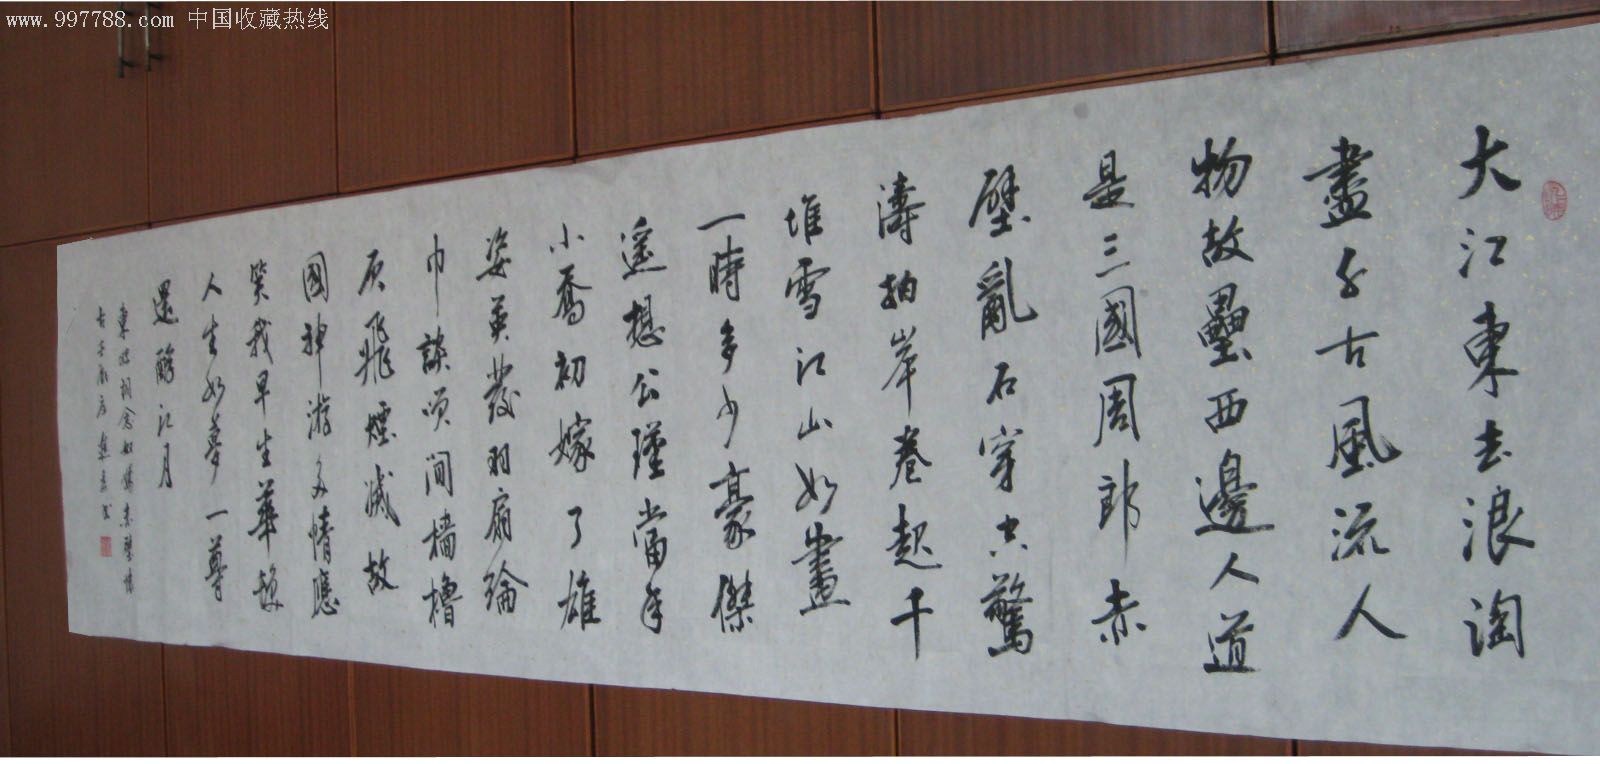 www.997788.com 中国收藏热线
大江東去浪淘
盡千古風流人
物故壘西邊人道
是三國周郎赤
壁亂石穿空驚
濤拍岸卷起千
堆雪江山如畫
一時多少豪傑
遙想公瑾當年
小喬初嫁了雄
姿英發羽扇綸
巾談笑間檣櫓
灰飛煙滅故
國神游多情應
笑我早生華髮
人生如夢一尊
還酹江月
東坡詞念奴嬌赤壁懷
古